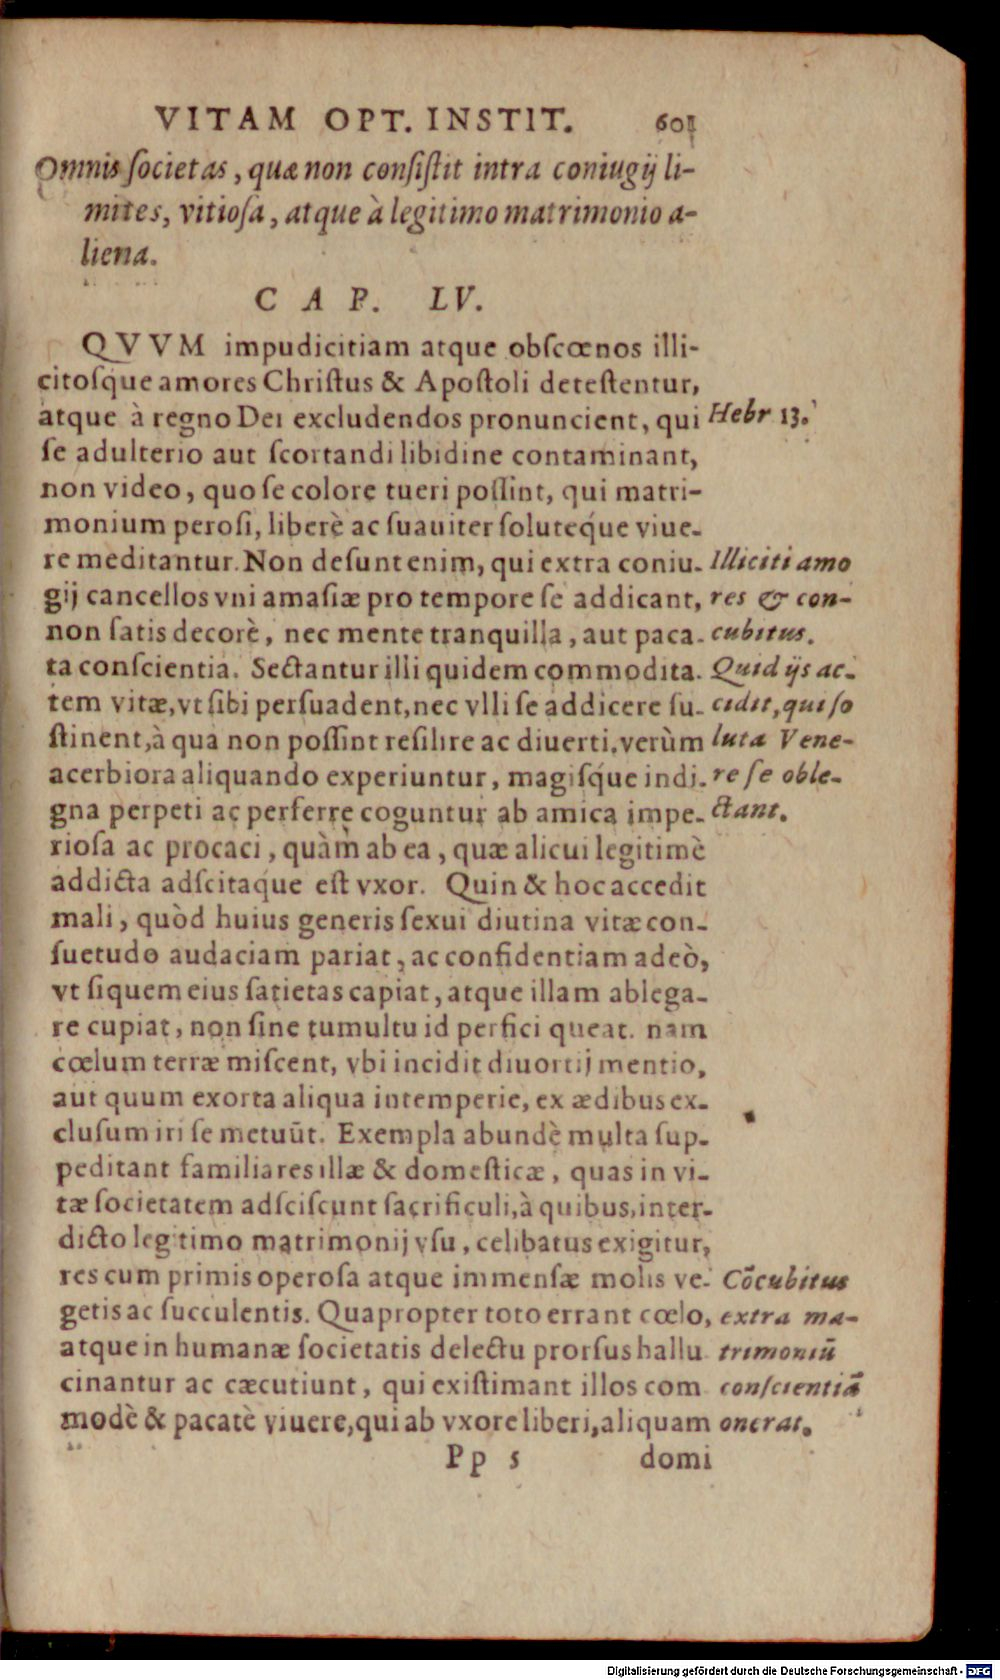 VITAM OPT. INSTIT. 601
Omnis ſocietas, quæ non conſiſtit intra coniugij li-
mites, vitioſa, atque à legitimo matrimonio a-
liena.
CAP. LV.
QVVM impudicitiam atque obſcœnos illi-
citoſque amores Chriſtus & Apoſtoli deteſtentur,
atque à regno Dei excludendos pronuncient, qui
Hebr 13.
ſe adulterio aut ſcortandi libidine contaminant,
non video, quo ſe colore tueri poſſint, qui matri-
monium peroſi, liberè ac ſuauiter ſoluteq́ue viue-
re meditantur. Non deſunt enim, qui extra coniu-
gij cancellos vni amaſiæ pro tempore ſe addicant,
non ſatis decorè, nec mente tranquilla, aut paca-
Illiciti amo
res & con-
cubitus.
ta conſcientia. Sectantur illi quidem commodita-
tem vitæ, vt ſibi perſuadent, nec vlli ſe addicere ſu-
ſtinent, à qua non poſſint reſilire ac diuerti, verùm
acerbiora aliquando experiuntur, magiſq́ue indi-
gna perpeti ac perferre coguntur ab amica impe-
Quid ijs ac-
cidit, qui ſo
luta Vene-
re ſe oble-
ctant.
rioſa ac procaci, quàm ab ea, quæ alicui legitimè
addicta adſcitaq́ue eſt vxor. Quin & hoc accedit
mali, quòd huius generis ſexui diutina vitæ con-
ſuetudo audaciam pariat, ac confidentiam adeò,
vt ſiquem eius ſatietas capiat, atque illam ablega-
re cupiat, non ſine tumultu id perfici queat. nam
cœlum terræ miſcent, vbi incidit diuortij mentio,
aut quum exorta aliqua intemperie, ex ædibus ex-
cluſum iri ſe metuūt. Exempla abundè multa ſup-
peditant familiares illæ & domeſticæ, quas in vi-
tæ ſocietatem adſciſcunt ſacrificuli, à quibus, inter-
dicto legitimo matrimonij vſu, celibatus exigitur,
res cum primis operoſa atque immenſæ molis ve-
getis ac ſucculentis. Quapropter toto errant cœlo,
atque in humanæ ſocietatis delectu prorſus hallu
cinantur ac cæcutiunt, qui exiſtimant illos com
modè & pacatè viuere, qui ab vxore liberi, aliquam
Cōcubitus
extra ma-
trimoniū
conſcientiā
onerat.
Pp 5 domi
Digitalisierung gefördert durch die Deutsche Forschungsgemeinschaft - DFG